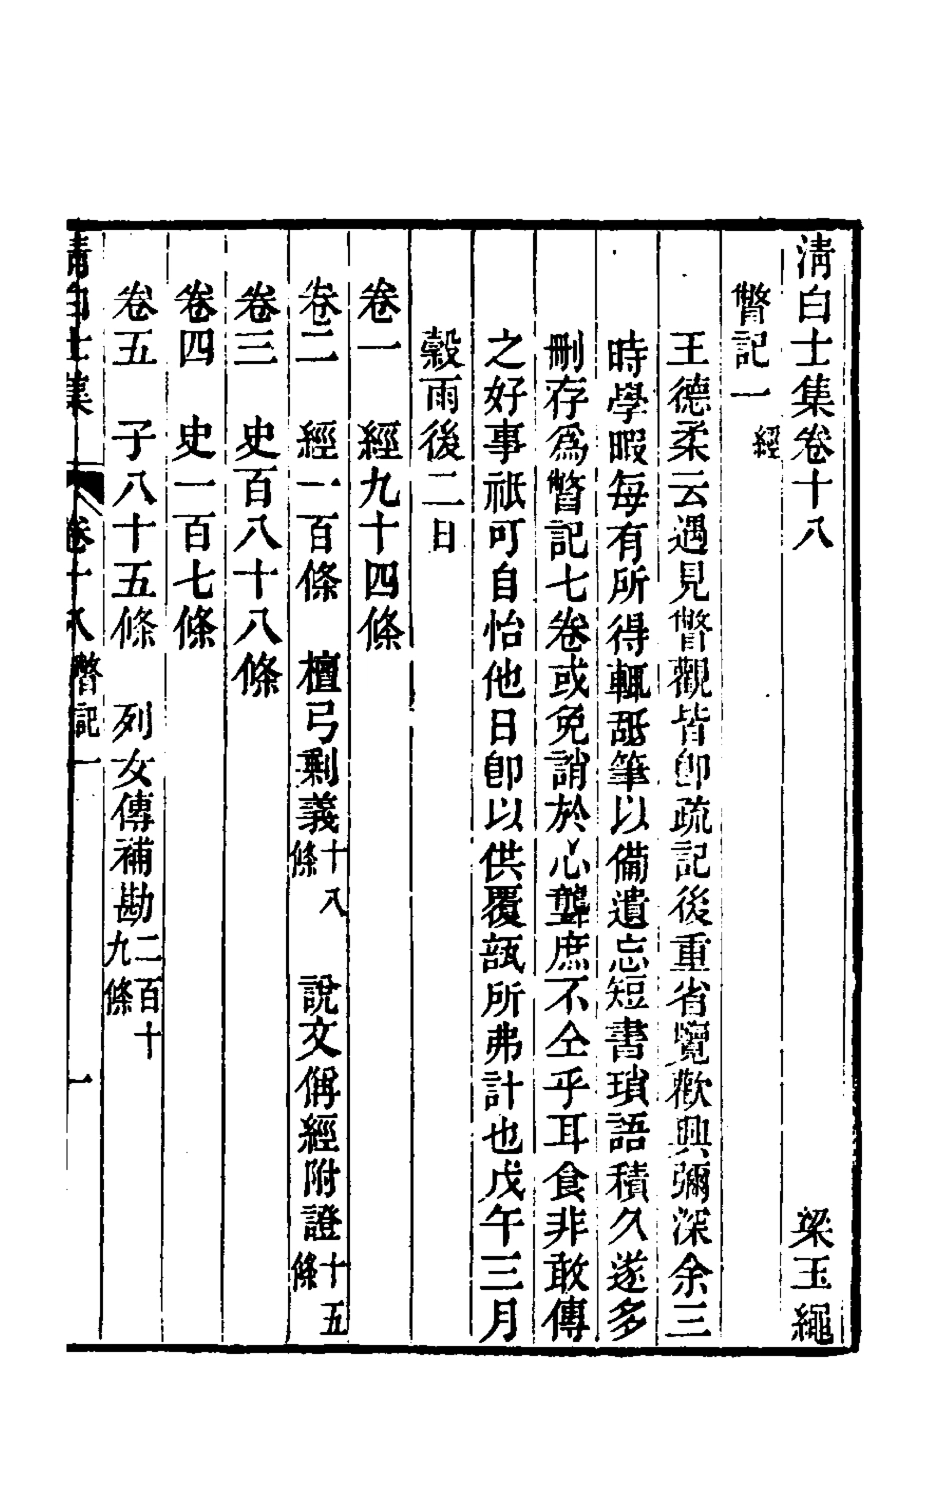 清白士集卷十八　梁玉繩
瞥記一　經
王德柔云遇見瞥觀皆卽疏記後重省覽歡興彌深余三
時學暇每有所得輒舐筆以備遺忘短書瑣語積久遂多
刪存爲瞥記七卷或免誚於心聾庶不仝乎耳食非敢傳
之好事祇可自怡他日卽以供覆瓿所弗計也戊午三月
穀雨後二日
卷一　經九十四條
卷二　經一百條　檀弓剩義十八條　說文偁經附證十五條
卷三　史百八十八條
卷四　史一百七條
卷五　子八十五條　列女傳補勘二百十九條
清白士集　卷十八　瞥記一　一